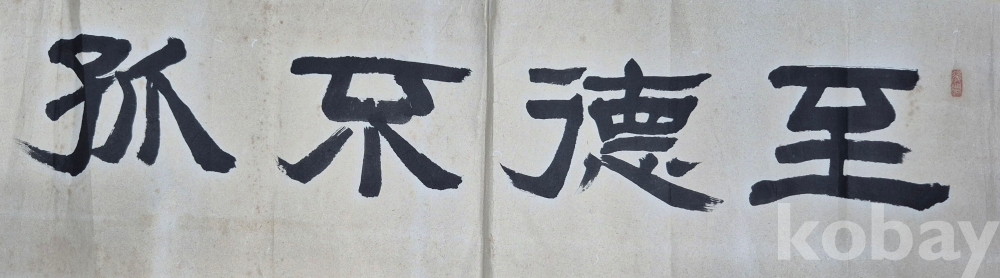 至德不孤
kobay